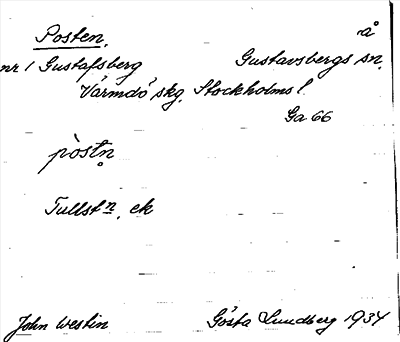 Posten. å
nr 1 Gustafsberg Gustavsbergs sn.
Värmdö skg. Stockholms l
Ga 66
pòstn̥
Tullstn, ek
John Westin Gösta Lundberg 1934